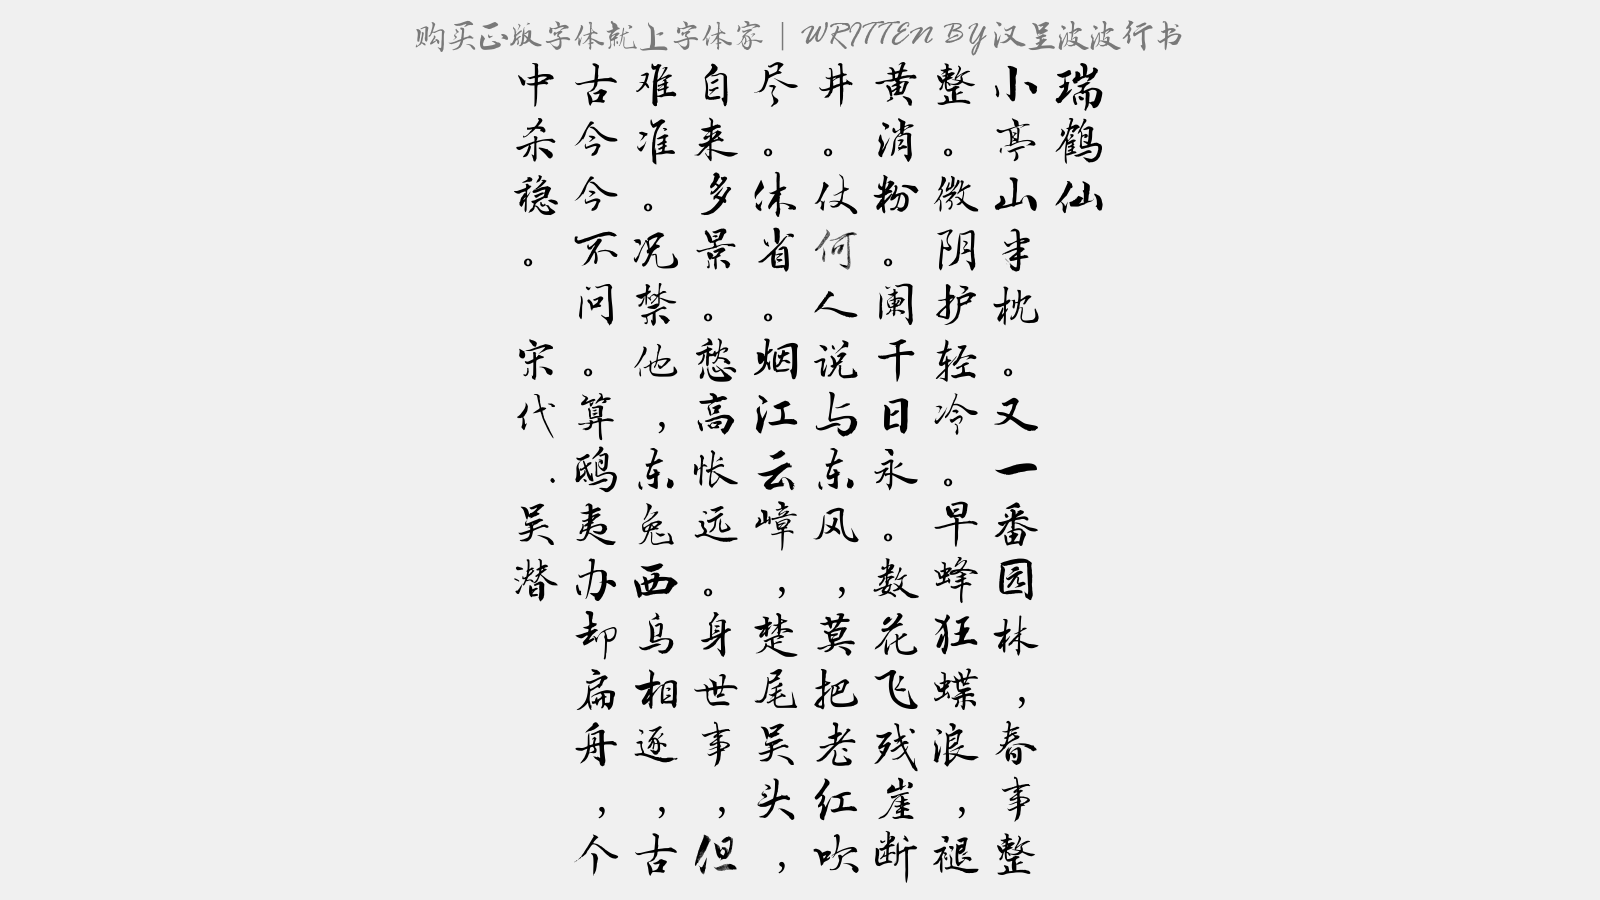 购买正版字体就上字体家 | WRITTEN BY 汉呈波波行书
瑞鹤仙
小亭山半枕。又一番园林，春事整
整。微阴护轻冷。早蜂狂蝶浪，褪
黄消粉。阑干日永。数花飞残崖断
井。仗何人说与东风，莫把老红吹
尽。休省。烟江云嶂，楚尾吴头，
自来多景。愁高怅远。身世事，但
难准。况禁他，东兔西乌相逐，古
古今今不问。算鸱夷办却扁舟，个
中杀稳。 宋代.吴潜